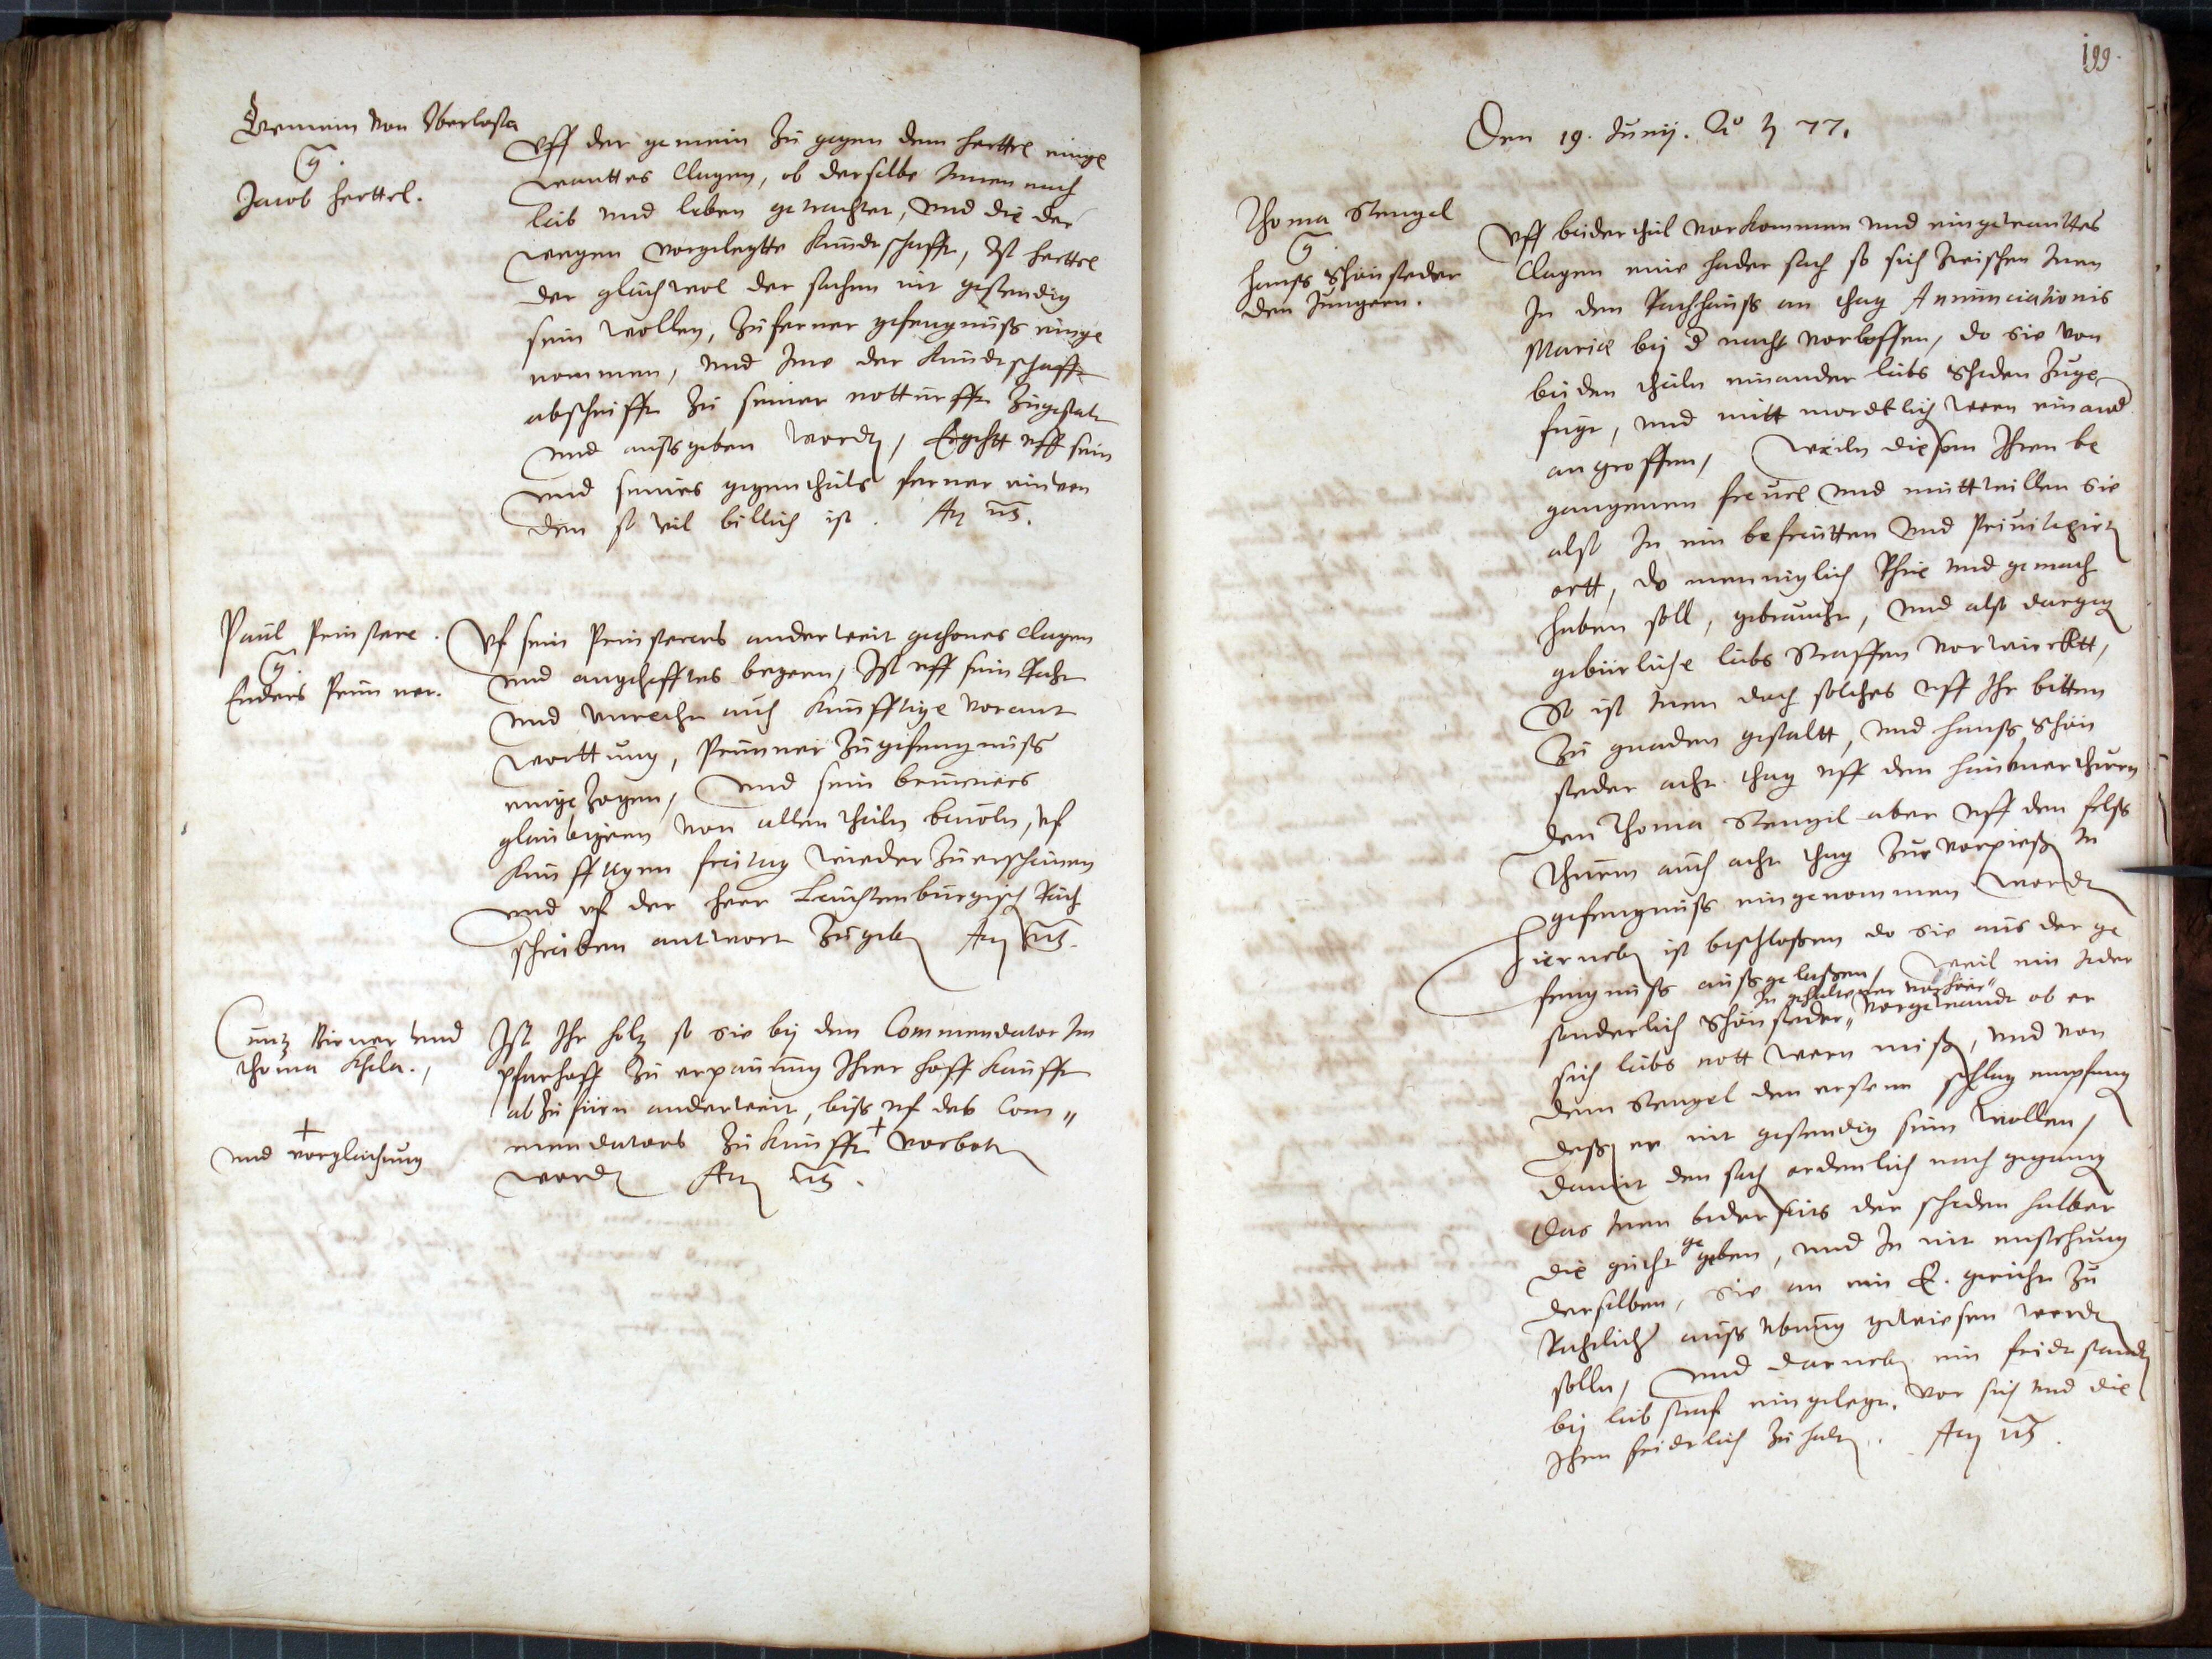 Gemein von Oberlosa
g.
Jacob Herttel.
Uff der gemein zu gegen dem Herttel einge
wanttes Clagen, ob derselbe Innen nach
leib und leben getrachtet, und die der
wegen vorgelegtte Kundtschafft, Ist Herttel
der gleichwol der sachen nit gestendig
sein wollen, zu ferner gefengnuß einge
nommen, und Ime der Kundtschafft
abschrifft zu seiner notturfft zugestalt
und außgeben word, Ergehtt uff sein
und seines gegentheils ferner einwen
den so viel billich ist.
Paul
g.
Enders Prunner.
Uf sein anderweit gethones Clagen
und angehefftes begern, Ist uff sein Recht
und unrecht auch kunfftige verant
worttung, Prunner zu gefengnuß
eingezogen, und sein Brunners
glaubigern von allen theiln bevoln, uf
kunfftigen freitag wieder zu erscheinen
und uf der herr Leuchtenburgisch Räth
schreiben antwort zu geb
Cuntz und
Thoma
Ist Ihr holz so sie bey dem Commendator Im
pfarhoff zu erpauung Ihrer hoff kaufft
abzufüren anderweit, biß uf des Com„
mendators zukunfft + verbot
word
+
und vorgleichung
199.
Den 19. Junij. Ao 77.
Thoma Stengel
g.
Hanß Schönsteder
den Jungern.
Uff beider theil vorkommen und eingewanttes
Clagen eine hader sach so sich zwischen Inen
In dem Rathhauß am thag Annunciationis
Mariae bey d nacht verloffen, do sie von
beiden theiln einander leibs scheden zuge
fugt, und mitt mordtlich wern einand
angroffen, Weiln diesem Ihren be
gangenem frevel und muttwillen sie
alß In ein befreitten und Privilegirt
ortt, do menniglich Rhue und gemach
haben soll, gebraucht, und also dargeg
gebürliche leibs straffen vorwirckt,
So ist Inen doch solches uff Ihr bitten
zu gnaden gestaltt, und Hanß Schön
steder acht thag uff den thurn
den Thoma Stengel aber uff den felß
thurm auch acht thag zur In
gefengnuß eingenommen word
Hierneb ist beschloßen do sie aus der ge
fengnuß außgelaßen, Weil ein Ieder
sonderlich Schönsteder „In gehaltener verhör“ vorgewandt ob er
sich leibs nott wern muß, und von
dem Stengel den ersten schlag empfang
deß er nit gestendig sein wollen,
Damit den sach ordenlich nach gegang
Das Inen beiderseits der scheden halber
die gutte gegeben, und In nit entstehung
derselben, sie an ein E. gericht zu
Rechtlich außubung gewiesen werd
solln, und darneb ein fridtstandt
bey leib straf eingelegt. vor sich und die
Ihren fridtlich zu halt.